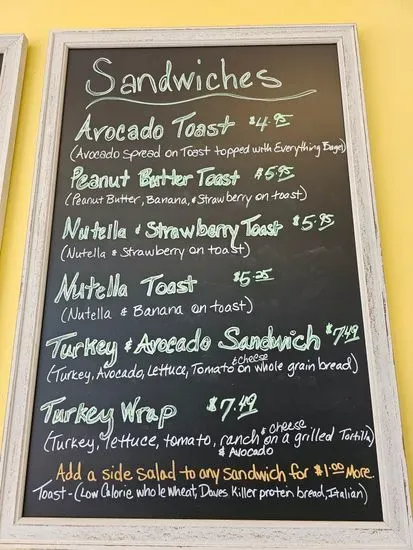 Sandwiches
Avocado Toast $4.95
(Avocado spread on Toast topped with Everything Bagel)
Peanut Butter Toast $5.95
(Peanut Butter, Banana, & Strawberry on toast)
Nutella & Strawberry Toast $5.95
(Nutella & Strawberry on toast)
Nutella Toast $5.25
(Nutella & Banana on toast)
Turkey & Avocado Sandwich $7.49
(Turkey, Avocado, Lettuce, Tomato & cheese on whole grain bread)
Turkey Wrap $7.49
(Turkey, lettuce, tomato, ranch & cheese on a grilled Tortilla)
& Avocado
Add a side salad to any sandwich for $1.00 More.
Toast - (Low Calorie whole wheat, Daves Killer protein bread, Italian)